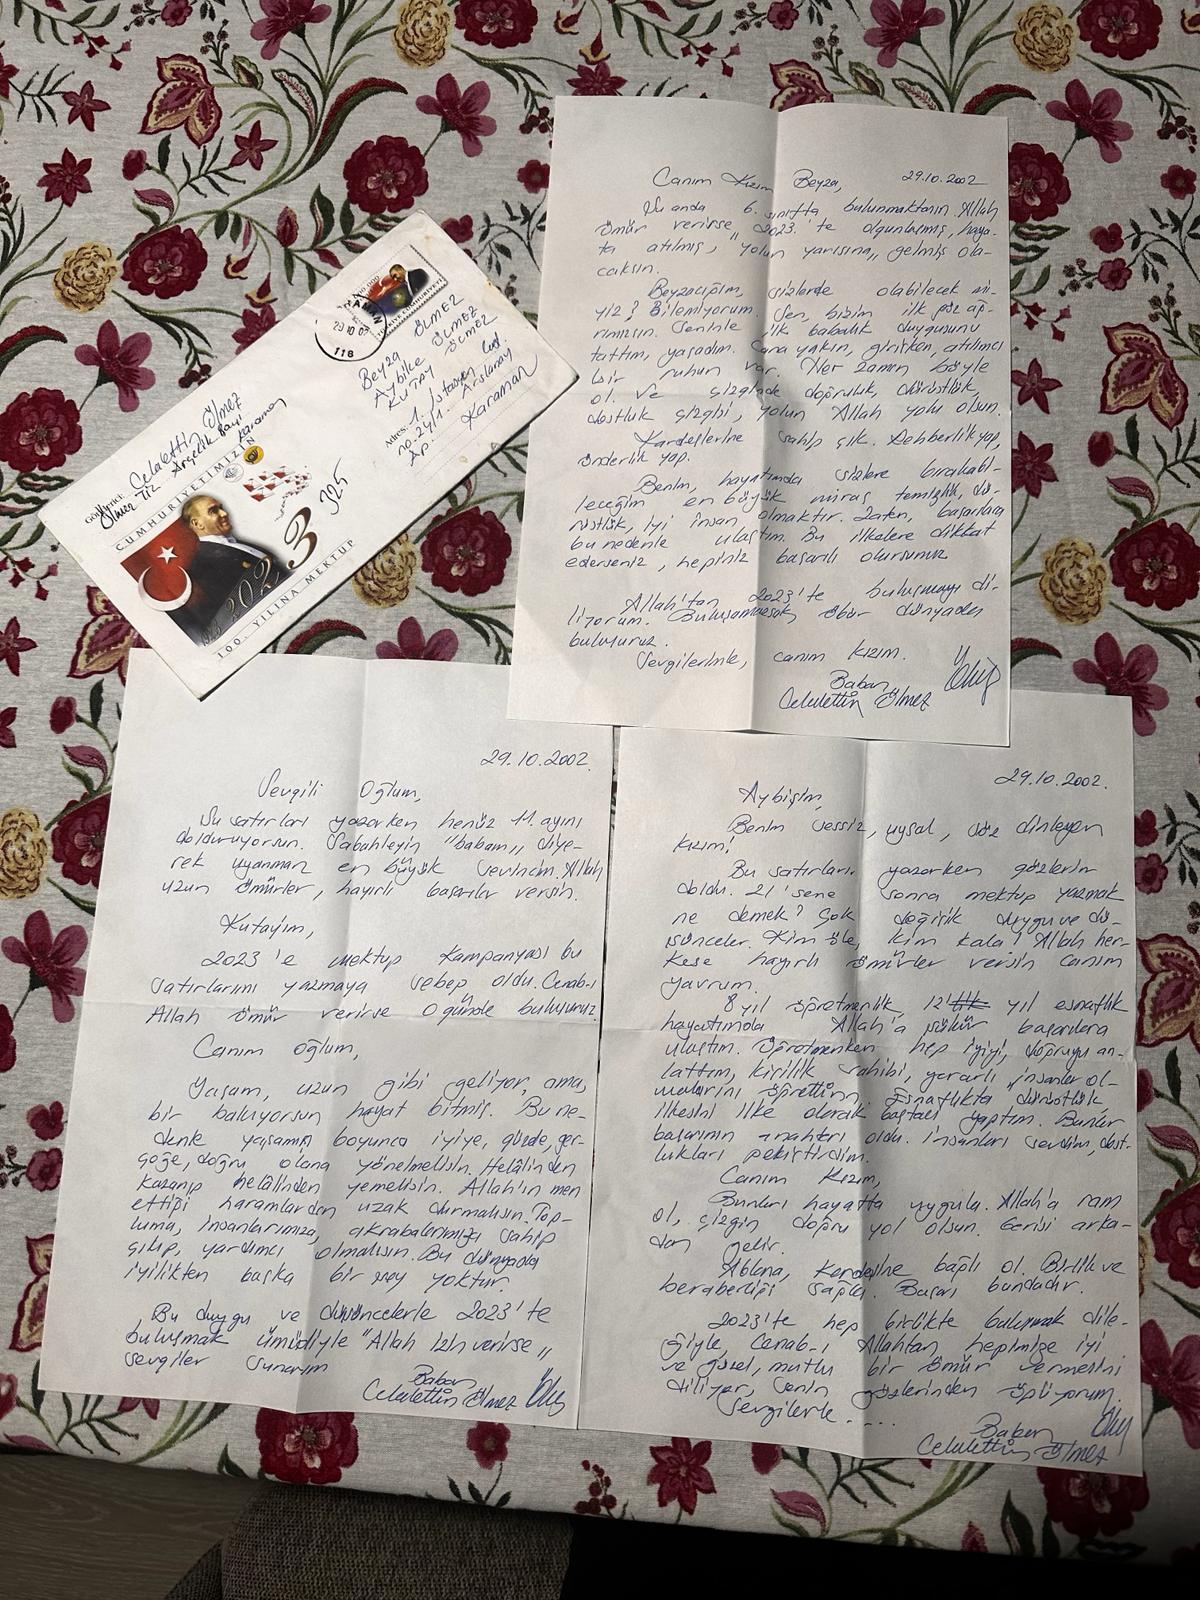 GÖNDERİCİ:
Celalettin Ölmez
Ölmez Tic Arçelik Bayi
Karaman
CUMHURİYETİMİZİN
2023
100. YILINA MEKTUP
325
118
Beyza ÖLMEZ
Aybilce ÖLMEZ
KUTAY ÖLMEZ
Adres: 1. İstasyon Cad.
no-24/1. Arslanay
Ap. Karaman
Canım Kızım Beyza, 29.10.2002
Şu anda 6. sınıfta bulunmaktasın. Allah
ömür verirse "2023"te olgunlaşmış, haya-
ta atılmış, "yolun yarısına" gelmiş ola-
caksın.
Beyzacığım, sizlerde olabilecek mi-
yiz? Bilemiyorum. Sen, bizim ilk göz ağ-
rımızsın. Seninle ilk babalık duygusunu
tattım, yaşadım. Cana yakın, girişken, atılımcı
bir ruhun var. Her zaman böyle
ol. Ve çizginde doğruluk, dürüstlük,
dostluk çizgisi, yolun Allah yolu olsun.
Kardeşlerine sahip çık. Rehberlik yap,
önderlik yap.
Benim, hayatımda sizlere bırakabi-
leceğim en büyük miras temizlik, dü-
rüstlük, iyi insan olmaktır. Zaten, başarılara
bu nedenle ulaştım. Bu ilkelere dikkat
ederseniz, hepiniz başarılı olursunuz
Allah'tan 2023'te buluşmayı di-
liyorum. Buluşamazsak öbür dünyada
buluşuruz.
Sevgilerimle, canım kızım.
Baban
Celalettin Ölmez
29.10.2002.
Sevgili Oğlum,
Şu satırları yazarken henüz 11. ayını
dolduruyorsun. Sabahleyin "babam" diye-
rek uyanman en büyük sevincim. Allah
uzun ömürler, hayırlı başarılar versin.
Kutayım,
2023'e mektup kampanyası bu
satırlarımı yazmaya sebep oldu. Cenab-ı
Allah ömür verirse o günde buluşuruz.
Canım oğlum,
Yaşam, uzun gibi geliyor, ama,
bir bakıyorsun hayat bitmiş. Bu ne-
denle yaşamın boyunca iyiye, güzele, ger-
çeğe, doğru olana yönelmelisin. Helâlinden
kazanıp helâlinden yemelisin. Allah'ın men
ettiği haramlardan uzak durmalısın. Top-
luma, insanlarımıza, akrabalarımıza sahip
çıkıp, yardımcı olmalısın. Bu dünyada
iyilikten başka bir şey yoktur.
Bu duygu ve düşüncelerle 2023'te
buluşmak ümidiyle "Allah izin verirse"
sevgiler sunarım
Baban
Celalettin Ölmez
29.10.2002.
Aybişim,
Benim sessiz, uysal, söz dinleyen
kızım!
Bu satırları yazarken gözlerim
doldu. 21 sene sonra mektup yazmak
ne demek? Çok değişik duygu ve dü-
şünceler. Kim öle, kim kala! Allah her-
kese hayırlı ömürler versin canım
yavrum.
8 yıl öğretmenlik, 12 yıl esnaflık
hayatımda Allah'a şükür başarılara
ulaştım. Öğretmenken hep iyiyi, doğruyu an-
lattım, kişilik sahibi, yararlı insanlar ol-
malarını öğrettim. Esnaflıkta dürüstlük
ilkesini ilke olarak baştacı yaptım. Bunlar
başarının anahtarı oldu. İnsanları sevdim, dost-
lukları pekiştirdim.
Canım Kızım,
Bunları hayatta uygula. Allah'a ram
ol, çizgin doğru yol olsun. Gerisi arka-
dan gelir.
Ablana, kardeşine bağlı ol. Birlik ve
beraberliği sağla. Başarı bundadır.
2023'te hep birlikte buluşmak dile-
ğiyle, Cenab-ı Allahtan hepimize iyi
ve güzel, mutlu bir ömür vermesini
diliyor, senin gözlerinden öpüyorum.
Sevgilerle.....
Baban
Celalettin Ölmez